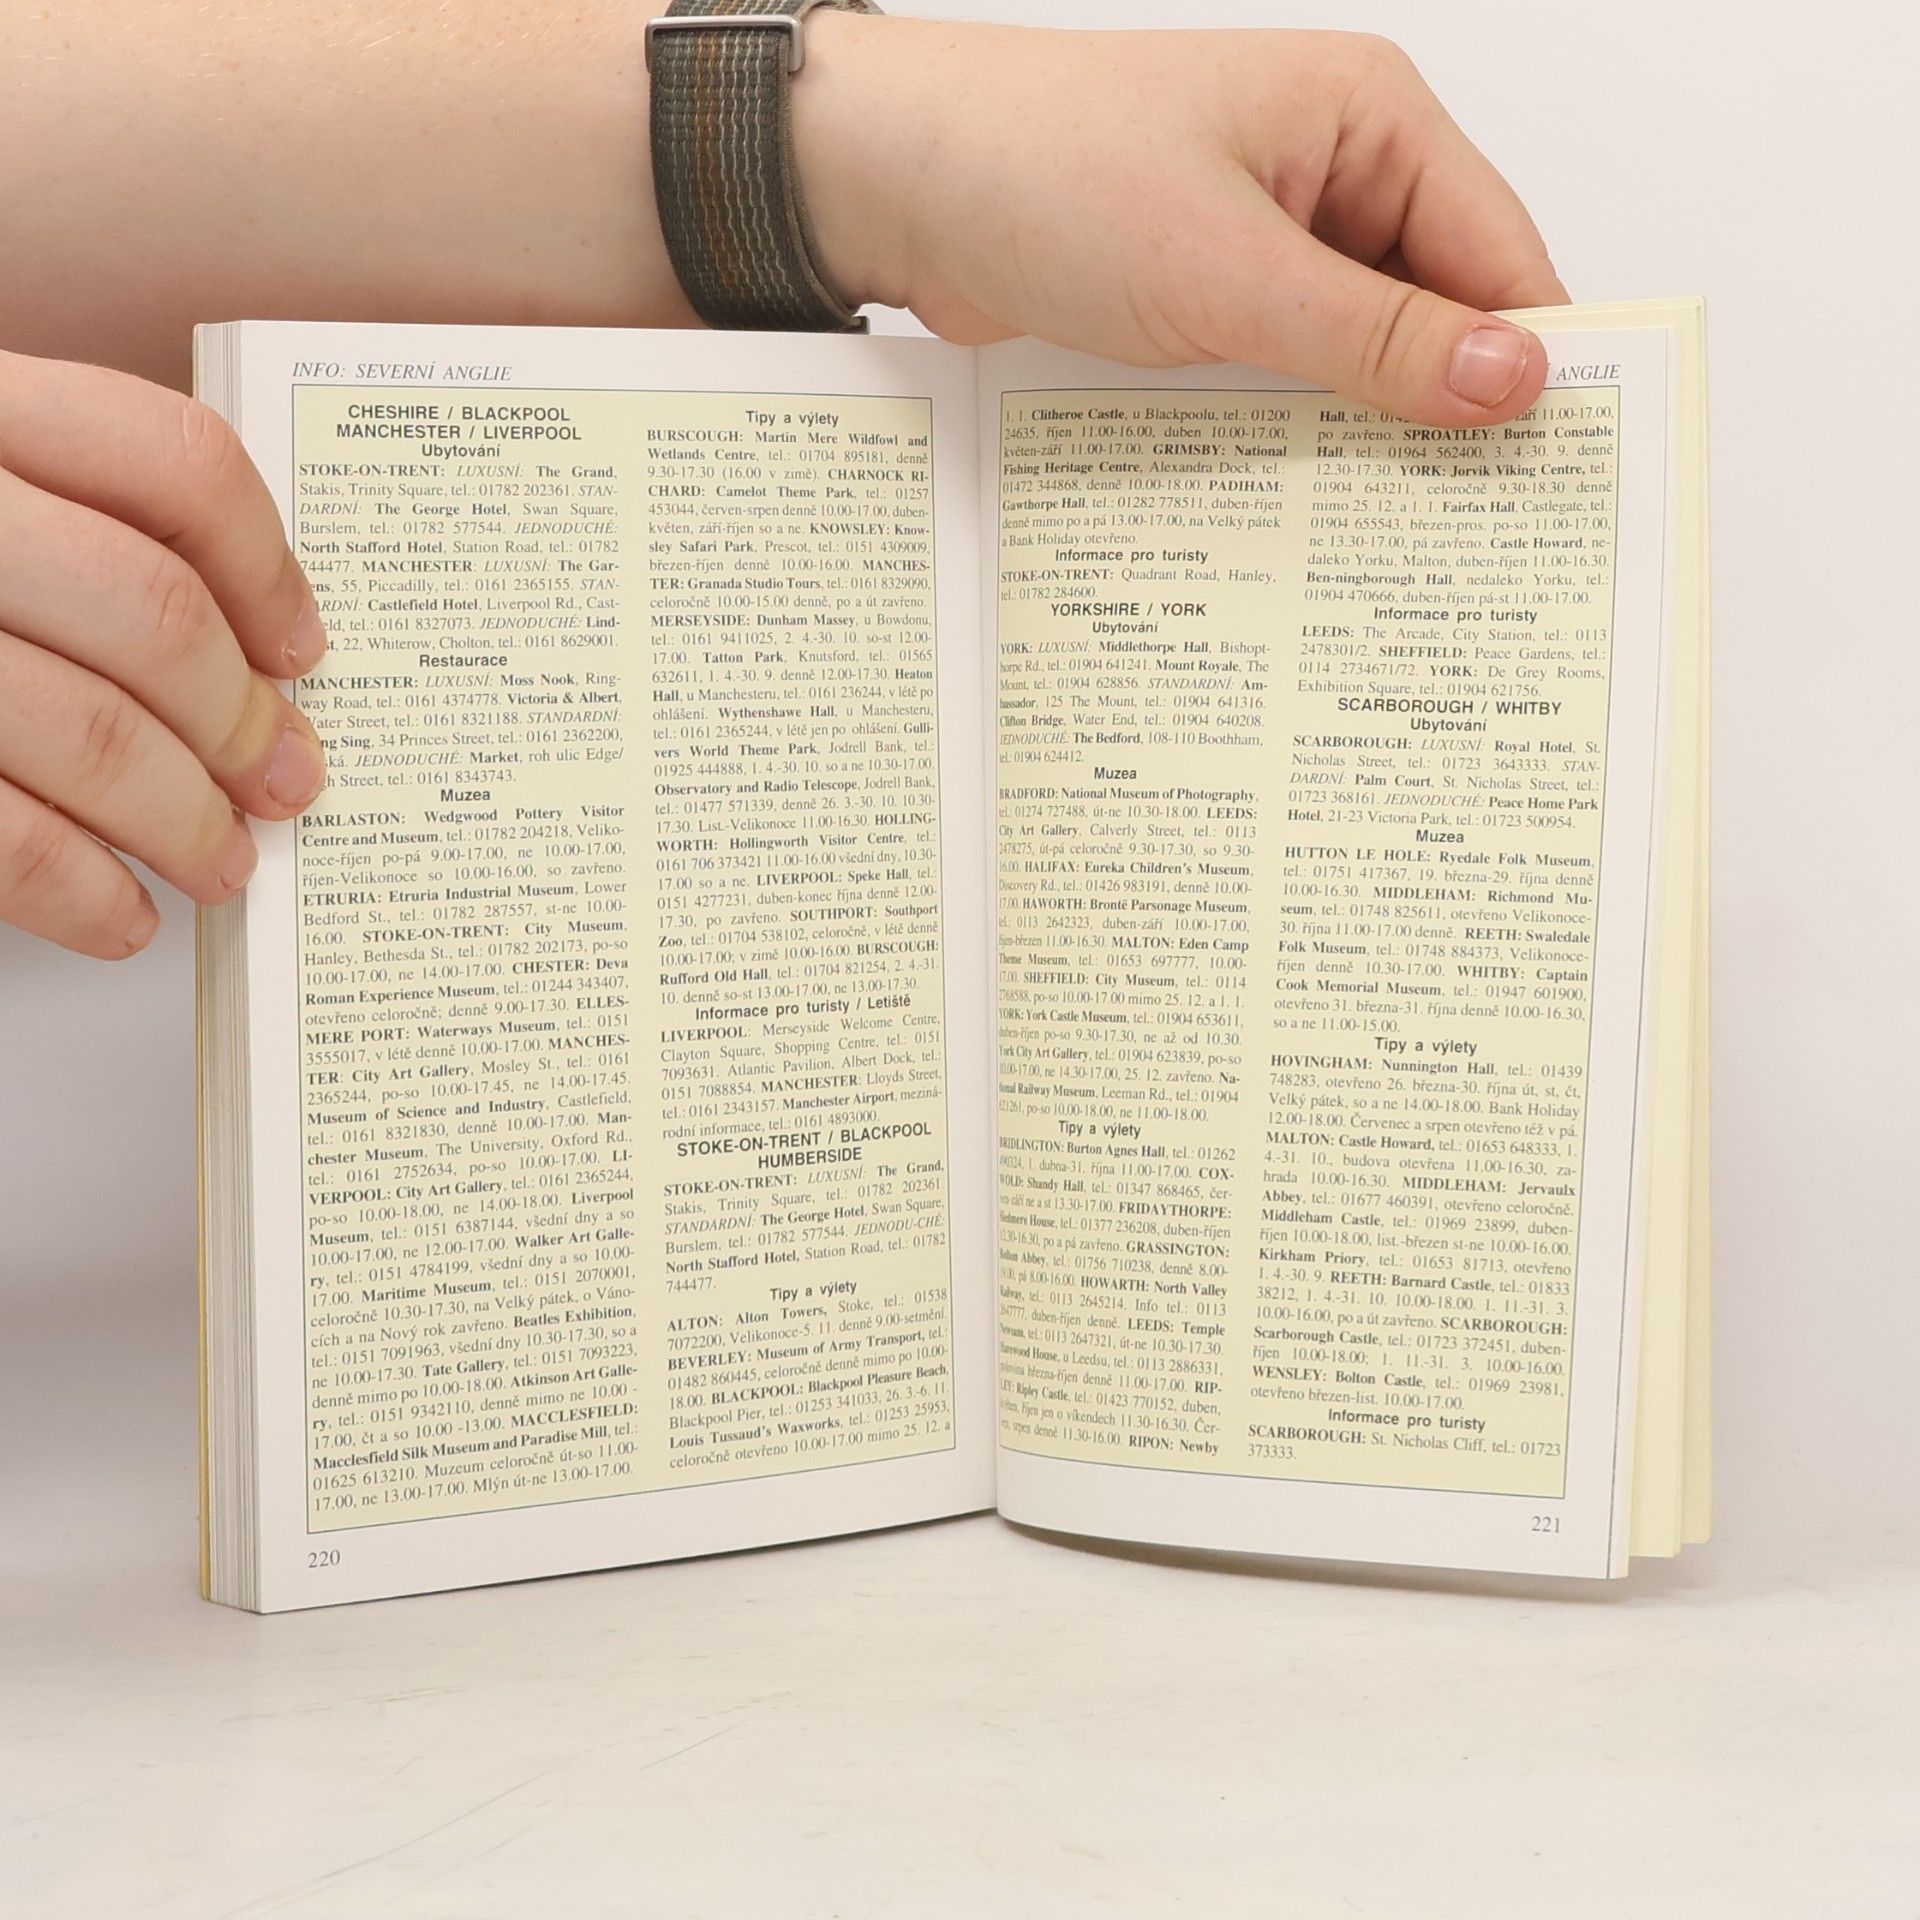 INFO: SEVERNÍ ANGLIE
CHESHIRE / BLACKPOOL
MANCHESTER / LIVERPOOL
Ubytování
STOKE-ON-TRENT: LUXUSNÍ: The Grand,
Stakis, Trinity Square, tel.: 01782 202361. STAN-
DARDNÍ: The George Hotel, Swan Square,
Burslem, tel.: 01782 577544. JEDNODUCHÉ:
North Stafford Hotel, Station Road, tel.: 01782
744477. MANCHESTER: LUXUSNÍ: The Gar-
ens, 55, Piccadilly, tel.: 0161 2365155. STAN-
ARDNÍ: Castlefield Hotel, Liverpool Rd., Cast-
eld, tel.: 0161 8327073. JEDNODUCHÉ: Lind-
st, 22, Whiterow, Cholton, tel.: 0161 8629001.
Restaurace
MANCHESTER: LUXUSNÍ: Moss Nook, Ring-
way Road, tel.: 0161 4374778. Victoria & Albert,
Water Street, tel.: 0161 8321188. STANDARDNÍ:
ng Sing, 34 Princes Street, tel.: 0161 2362200,
ská. JEDNODUCHÉ: Market, roh ulic Edge/
gh Street, tel.: 0161 8343743.
Muzea
BARLASTON: Wedgwood Pottery Visitor
Centre and Museum, tel.: 01782 204218, Veliko-
noce-říjen po-pá 9.00-17.00, ne 10.00-17.00,
říjen-Velikonoce so 10.00-16.00, so zavřeno.
ETRURIA: Etruria Industrial Museum, Lower
Bedford St., tel.: 01782 287557, st-ne 10.00-
16.00. STOKE-ON-TRENT: City Museum,
Hanley, Bethesda St., tel.: 01782 202173, po-so
10.00-17.00, ne 14.00-17.00. CHESTER: Deva
Roman Experience Museum, tel.: 01244 343407,
otevřeno celoročně; denně 9.00-17.30. ELLES-
MERE PORT: Waterways Museum, tel.: 0151
3555017, v létě denně 10.00-17.00. MANCHES-
TER: City Art Gallery, Mosley St., tel.: 0161
2365244, po-so 10.00-17.45, ne 14.00-17.45.
Museum of Science and Industry, Castlefield,
tel.: 0161 8321830, denně 10.00-17.00. Man-
chester Museum, The University, Oxford Rd.,
tel.: 0161 2752634, po-so 10.00-17.00. LI-
VERPOOL: City Art Gallery, tel.: 0161 2365244,
po-so 10.00-18.00, ne 14.00-18.00. Liverpool
Museum, tel.: 0151 6387144, všední dny a so
10.00-17.00, ne 12.00-17.00. Walker Art Galle-
ry, tel.: 0151 4784199, všední dny a so 10.00-
17.00. Maritime Museum, tel.: 0151 2070001,
celoročně 10.30-17.30, na Velký pátek, o Váno-
cích a na Nový rok zavřeno. Beatles Exhibition,
tel.: 0151 7091963, všední dny 10.30-17.30, so a
ne 10.00-17.30. Tate Gallery, tel.: 0151 7093223,
denně mimo po 10.00-18.00. Atkinson Art Galle-
ry, tel.: 0151 9342110, denně mimo ne 10.00 -
17.00, čt a so 10.00 -13.00. MACCLESFIELD:
Macclesfield Silk Museum and Paradise Mill, tel.:
01625 613210. Muzeum celoročně út-so 11.00-
17.00, ne 13.00-17.00. Mlýn út-ne 13.00-17.00.
Tipy a výlety
BURSCOUGH: Martin Mere Wildfowl and
Wetlands Centre, tel.: 01704 895181, denně
9.30-17.30 (16.00 v zimě). CHARNOCK RI-
CHARD: Camelot Theme Park, tel.: 01257
453044, červen-srpen denně 10.00-17.00, duben-
květen, září-říjen so a ne. KNOWSLEY: Know-
sley Safari Park, Prescot, tel.: 0151 4309009,
březen-říjen denně 10.00-16.00. MANCHES-
TER: Granada Studio Tours, tel.: 0161 8329090,
celoročně 10.00-15.00 denně, po a út zavřeno.
MERSEYSIDE: Dunham Massey, u Bowdonu,
tel.: 0161 9411025, 2. 4.-30. 10. so-st 12.00-
17.00. Tatton Park, Knutsford, tel.: 01565
632611, 1. 4.-30. 9. denně 12.00-17.30. Heaton
Hall, u Manchesteru, tel.: 0161 236244, v létě po
ohlášení. Wythenshawe Hall, u Manchesteru,
tel.: 0161 2365244, v létě jen po ohlášení. Gulli-
vers World Theme Park, Jodrell Bank, tel.:
01925 444888, 1. 4.-30. 10. so a ne 10.30-17.00.
Observatory and Radio Telescope, Jodrell Bank,
tel.: 01477 571339, denně 26. 3.-30. 10. 10.30-
17.30. List.-Velikonoce 11.00-16.30. HOLLING-
WORTH: Hollingworth Visitor Centre, tel.:
0161 706 373421 11.00-16.00 všední dny, 10.30-
17.00 so a ne. LIVERPOOL: Speke Hall, tel.:
0151 4277231, duben-konec října denně 12.00-
17.30, po zavřeno. SOUTHPORT: Southport
Zoo, tel.: 01704 538102, celoročně, v létě denně
10.00-17.00; v zimě 10.00-16.00. BURSCOUGH:
Rufford Old Hall, tel.: 01704 821254, 2. 4.-31.
10. denně so-st 13.00-17.00, ne 13.00-17.30.
Informace pro turisty / Letiště
LIVERPOOL: Merseyside Welcome Centre,
Clayton Square, Shopping Centre, tel.: 0151
7093631. Atlantic Pavilion, Albert Dock, tel.:
0151 7088854. MANCHESTER: Lloyds Street,
tel.: 0161 2343157. Manchester Airport, meziná-
rodní informace, tel.: 0161 4893000.
STOKE-ON-TRENT / BLACKPOOL
HUMBERSIDE
STOKE-ON-TRENT: LUXUSNÍ: The Grand,
Stakis, Trinity Square, tel.: 01782 202361.
STANDARDNÍ: The George Hotel, Swan Square,
Burslem, tel.: 01782 577544. JEDNODU-CHÉ:
North Stafford Hotel, Station Road, tel.: 01782
744477.
Tipy a výlety
ALTON: Alton Towers, Stoke, tel.: 01538
7072200, Velikonoce-5. 11. denně 9.00-setmění.
BEVERLEY: Museum of Army Transport, tel.:
01482 860445, celoročně denně mimo po 10.00-
18.00. BLACKPOOL: Blackpool Pleasure Beach,
Blackpool Pier, tel.: 01253 341033, 26. 3.-6. 11.
Louis Tussaud's Waxworks, tel.: 01253 25953,
celoročně otevřeno 10.00-17.00 mimo 25. 12. a
220
ANGLIE
1. 1. Clitheroe Castle, u Blackpoolu, tel.: 01200
24635, říjen 11.00-16.00, duben 10.00-17.00,
květen-září 11.00-17.00. GRIMSBY: National
Fishing Heritage Centre, Alexandra Dock, tel.:
01472 344868, denně 10.00-18.00. PADIHAM:
Gawthorpe Hall, tel.: 01282 778511, duben-říjen
denně mimo po a pá 13.00-17.00, na Velký pátek
a Bank Holiday otevřeno.
Informace pro turisty
STOKE-ON-TRENT: Quadrant Road, Hanley,
tel.: 01782 284600.
YORKSHIRE / YORK
Ubytování
YORK: LUXUSNÍ: Middlethorpe Hall, Bishopt-
horpe Rd., tel.: 01904 641241. Mount Royale, The
Mount, tel.: 01904 628856. STANDARDNÍ: Am-
bassador, 125 The Mount, tel.: 01904 641316.
Clifton Bridge, Water End, tel.: 01904 640208.
JEDNODUCHÉ: The Bedford, 108-110 Boothham,
tel.: 01904 624412.
Muzea
BRADFORD: National Museum of Photography,
tel.: 01274 727488, út-ne 10.30-18.00. LEEDS:
City Art Gallery, Calverly Street, tel.: 0113
2478275, út-pá celoročně 9.30-17.30, so 9.30-
16.00. HALIFAX: Eureka Children's Museum,
Discovery Rd., tel.: 01426 983191, denně 10.00-
17.00. HAWORTH: Brontë Parsonage Museum,
tel.: 0113 2642323, duben-září 10.00-17.00,
říjen-březen 11.00-16.30. MALTON: Eden Camp
Theme Museum, tel.: 01653 697777, 10.00-
17.00. SHEFFIELD: City Museum, tel.: 0114
2768588, po-so 10.00-17.00 mimo 25. 12. a 1. 1.
YORK: York Castle Museum, tel.: 01904 653611,
duben-říjen po-so 9.30-17.30, ne až od 10.30.
York City Art Gallery, tel.: 01904 623839, po-so
10.00-17.00, ne 14.30-17.00, 25. 12. zavřeno. Na-
tional Railway Museum, Leeman Rd., tel.: 01904
621261, po-so 10.00-18.00, ne 11.00-18.00.
Tipy a výlety
BRIDLINGTON: Burton Agnes Hall, tel.: 01262
490324, 1. dubna-31. října 11.00-17.00. COX-
WOLD: Shandy Hall, tel.: 01347 868465, čer-
ven-září ne a st 13.30-17.00. FRIDAYTHORPE:
Sledmere House, tel.: 01377 236208, duben-říjen
12.30-16.30, po a pá zavřeno. GRASSINGTON:
Bolton Abbey, tel.: 01756 710238, denně 8.00-
19.00, pá 8.00-16.00. HOWARTH: North Valley
Railway, tel.: 0113 2645214. Info tel.: 0113
2647777, duben-říjen denně. LEEDS: Temple
Newsam, tel.: 0113 2647321, út-ne 10.30-17.30.
Harewood House, u Leedsu, tel.: 0113 2886331,
polovina března-říjen denně 11.00-17.00. RIP-
LEY: Ripley Castle, tel.: 01423 770152, duben,
květen, říjen jen o víkendech 11.30-16.30. Čer-
ven, srpen denně 11.30-16.00. RIPON: Newby
Hall, tel.: září 11.00-17.00,
po zavřeno. SPROATLEY: Burton Constable
Hall, tel.: 01964 562400, 3. 4.-30. 9. denně
12.30-17.30. YORK: Jorvik Viking Centre, tel.:
01904 643211, celoročně 9.30-18.30 denně
mimo 25. 12. a 1. 1. Fairfax Hall, Castlegate, tel.:
01904 655543, březen-pros. po-so 11.00-17.00,
ne 13.30-17.00, pá zavřeno. Castle Howard, ne-
daleko Yorku, Malton, duben-říjen 11.00-16.30.
Ben-ningborough Hall, nedaleko Yorku, tel.:
01904 470666, duben-říjen pá-st 11.00-17.00.
Informace pro turisty
LEEDS: The Arcade, City Station, tel.: 0113
2478301/2. SHEFFIELD: Peace Gardens, tel.:
0114 2734671/72. YORK: De Grey Rooms,
Exhibition Square, tel.: 01904 621756.
SCARBOROUGH / WHITBY
Ubytování
SCARBOROUGH: LUXUSNÍ: Royal Hotel, St.
Nicholas Street, tel.: 01723 3643333. STAN-
DARDNÍ: Palm Court, St. Nicholas Street, tel.:
01723 368161. JEDNODUCHÉ: Peace Home Park
Hotel, 21-23 Victoria Park, tel.: 01723 500954.
Muzea
HUTTON LE HOLE: Ryedale Folk Museum,
tel.: 01751 417367, 19. března-29. října denně
10.00-16.30. MIDDLEHAM: Richmond Mu-
seum, tel.: 01748 825611, otevřeno Velikonoce-
30. října 11.00-17.00 denně. REETH: Swaledale
Folk Museum, tel.: 01748 884373, Velikonoce-
říjen denně 10.30-17.00. WHITBY: Captain
Cook Memorial Museum, tel.: 01947 601900,
otevřeno 31. března-31. října denně 10.00-16.30,
so a ne 11.00-15.00.
Tipy a výlety
HOVINGHAM: Nunnington Hall, tel.: 01439
748283, otevřeno 26. března-30. října út, st, čt,
Velký pátek, so a ne 14.00-18.00. Bank Holiday
12.00-18.00. Červenec a srpen otevřeno též v pá.
MALTON: Castle Howard, tel.: 01653 648333, 1.
4.-31. 10., budova otevřena 11.00-16.30, za-
hrada 10.00-16.30. MIDDLEHAM: Jervaulx
Abbey, tel.: 01677 460391, otevřeno celoročně.
Middleham Castle, tel.: 01969 23899, duben-
říjen 10.00-18.00, list.-březen st-ne 10.00-16.00.
Kirkham Priory, tel.: 01653 81713, otevřeno
1. 4.-30. 9. REETH: Barnard Castle, tel.: 01833
38212, 1. 4.-31. 10. 10.00-18.00. 1. 11.-31. 3.
10.00-16.00, po a út zavřeno. SCARBOROUGH:
Scarborough Castle, tel.: 01723 372451, duben-
říjen 10.00-18.00; 1. 11.-31. 3. 10.00-16.00.
WENSLEY: Bolton Castle, tel.: 01969 23981,
otevřeno březen-list. 10.00-17.00.
Informace pro turisty
SCARBOROUGH: St. Nicholas Cliff, tel.: 01723
373333.
221